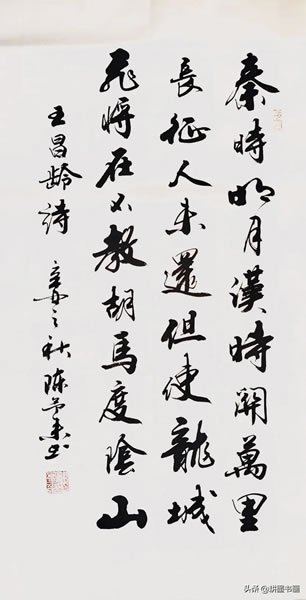 秦時明月漢時關萬里
長征人未還但使龍城
飛將在不教胡馬度陰山
王昌齡詩 之秋 陈 书
头条